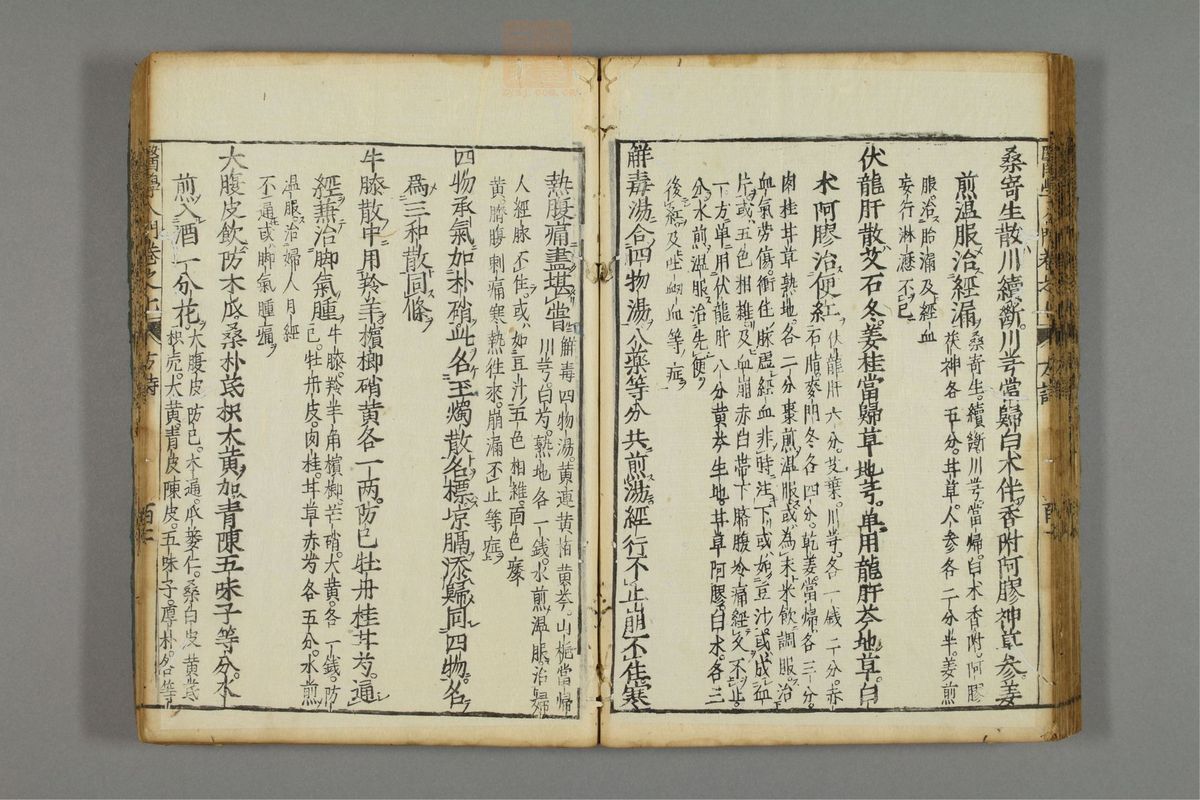 桑寄生散川續斷川芎當歸白朮伴香附阿膠神草參姜
煎温服治經漏
桑寄生續斷川芎當歸白朮香附阿膠
茯神各五分甘草人參各二分半姜煎
服治胎漏及經血
妄行淋瀝不已
伏龍肝散艾石冬姜桂當歸草地芎單用龍肝芩地草白
朮阿膠治便紅
伏龍肝六分艾葉川芎各一錢二分赤
石脂麥門冬各四分乾姜當歸各三分
肉桂甘草熟地各二分棗煎温服或為末米飲調服治
血氣勞傷衝任脉虛經血非時注下或如豆汁或成血
片或五色相雜及血崩赤白帶下臍腹冷痛經久不止
一方單用伏龍肝八分黃芩生地甘草阿膠白朮各三
分水煎温服治先便
後紅及吐衂血等症
解毒湯合四物湯八藥等分共煎湯經行不止崩不住寒
熱腹痛盡堪嘗
解毒四物湯黃連黃栢黃芩山梔當歸
川芎白芍熟地各一錢水煎温服治婦
人經脉不住或如豆汁五色相雜面色痿
黃臍腹刺痛寒熱徃來崩漏不止等症
四物承氣如朴硝此名玉燭散名標凉膈添歸同四物名
為三和散同條
牛膝散中用羚羊檳榔硝黃各一两防巳牡丹桂甘芍通
經兼治脚氣腫
牛膝羚羊角檳榔芒硝大黃各一錢防
巳牡丹皮肉桂甘草赤芍各五分水煎
温服治婦人月經
不通或脚氣腫痛
大腹皮飲防木瓜桑朴芪枳大黃加青陳五味子等分水
煎入酒一分花
大腹皮防巳木通瓜蔞仁桑白皮黃芪
枳壳大黃青皮陳皮五味子厚朴各等
醫學入門卷之七
方詩